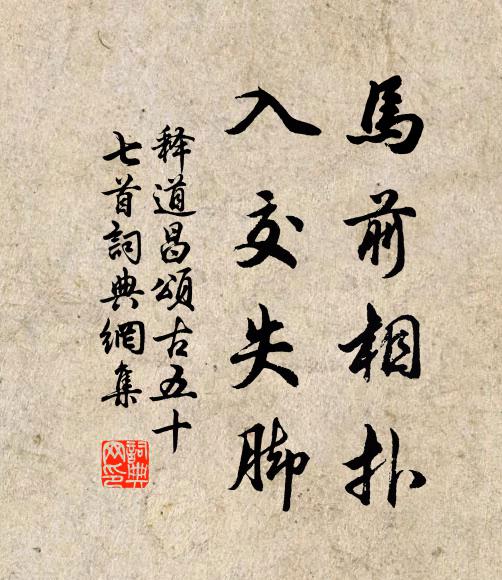 馬前相扑
入交失脚
释道昌頌古五十
七首詞典網集
詞典
网印